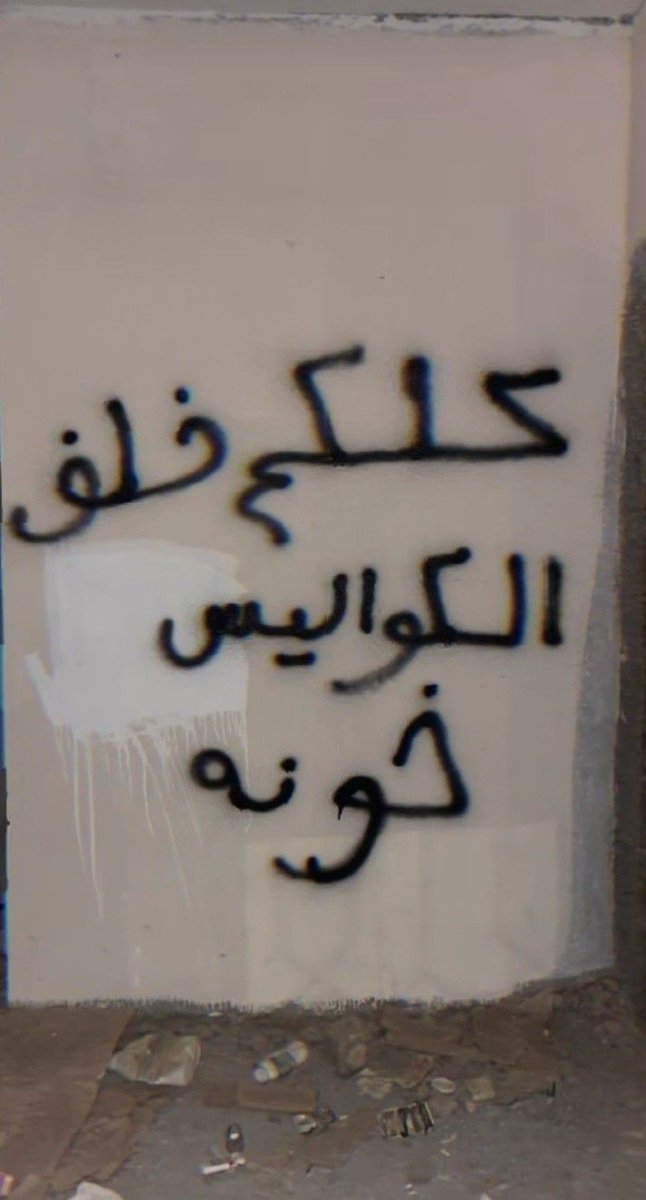 كلكم خلف
الكواليس
خونه